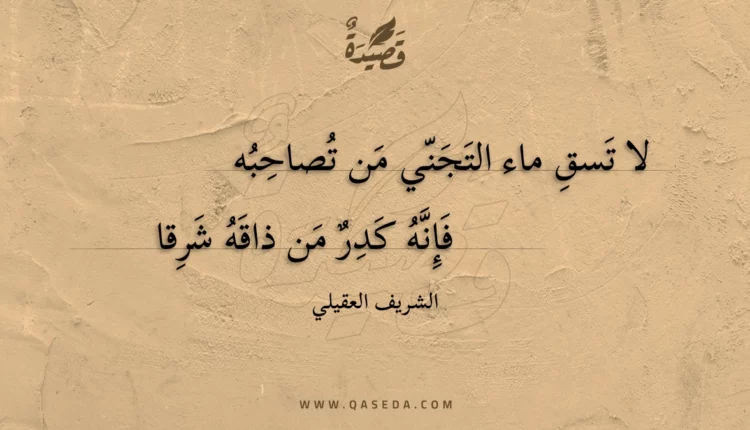 قَصِيدَةٌ
لا تَسقِ ماء التَجَنّي مَن تُصاحِبُه
فَإِنَّهُ كَدِرٌ مَن ذاقَهُ شَرِقا
الشريف العقيلي
WWW.QASEDA.COM